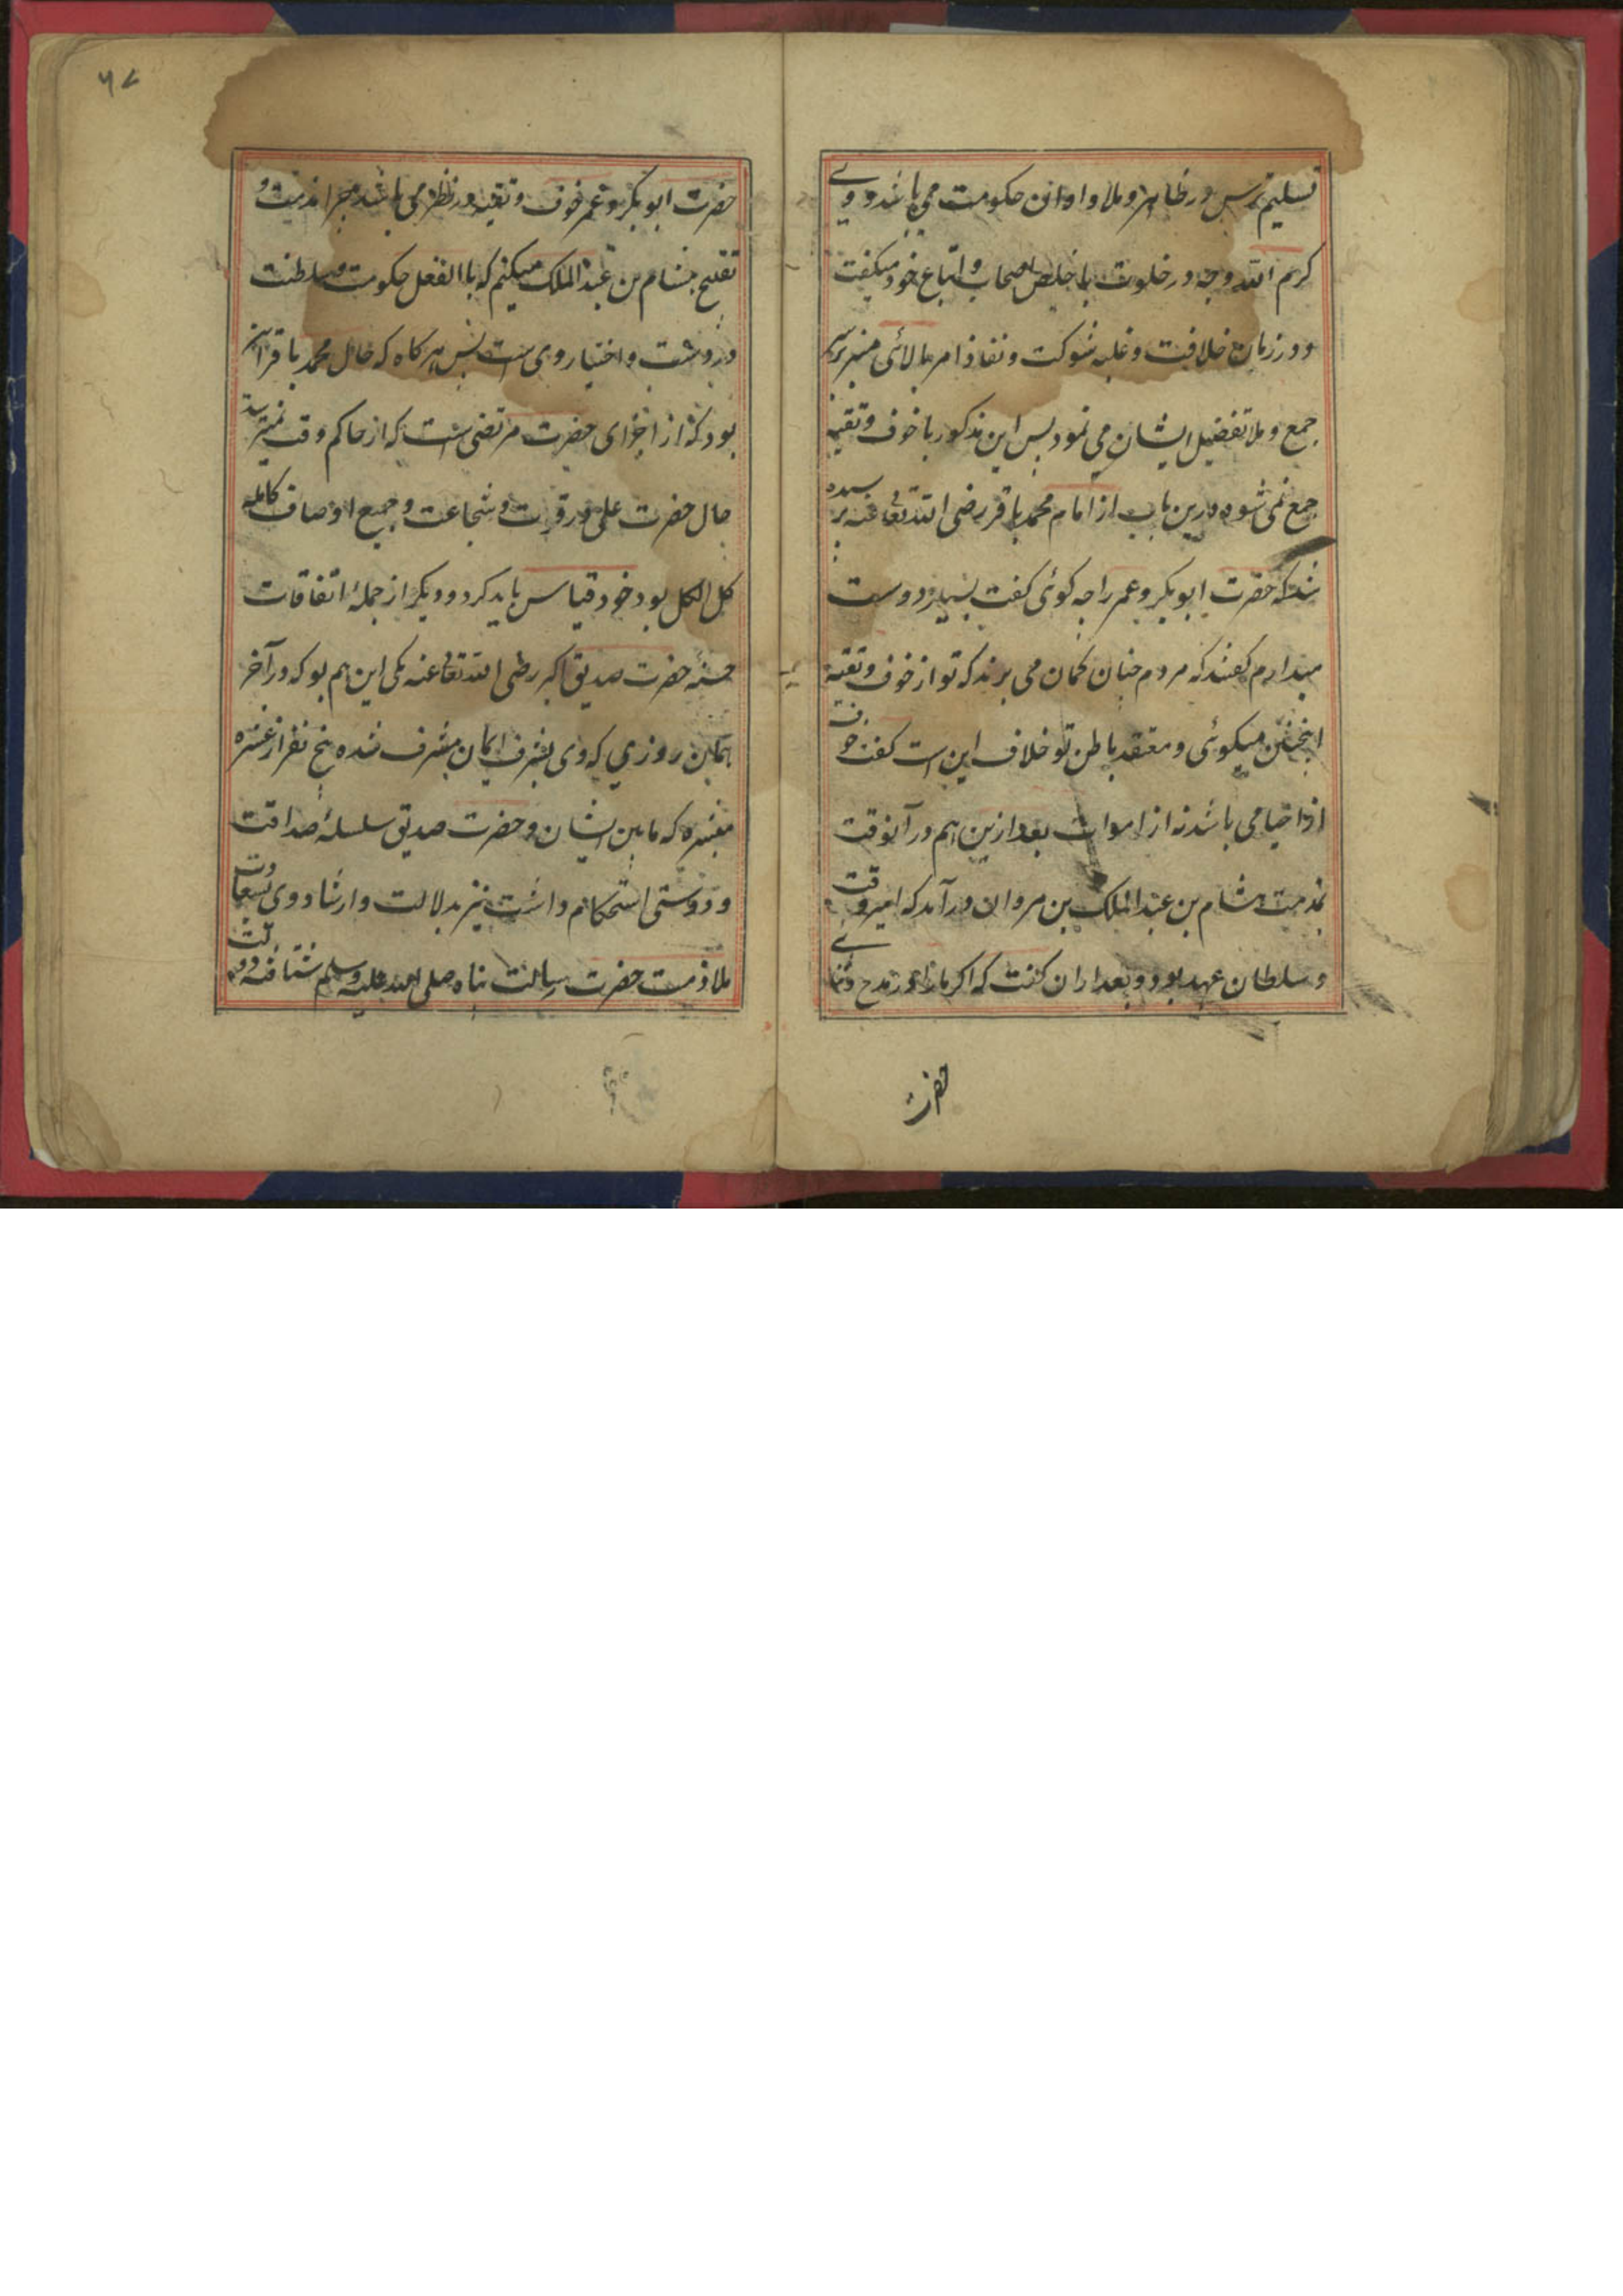 تسلیم ترس در ظاهر و ملا و اوان حکومت می باشد و وے
کرم الله وجه در خلوت با خلص اصحاب و اتباع خود میگفت
و در زمان خلافت و غلبه شوکت و نفاذ امر بالائی منبر بر سر
جمع و ملا تفضیل ایشان می نمود پس این مذکور با خوف و تقیه
جمع نمی شود درین باب از امام محمد باقر رضی الله تعالی عنه پرسیده
شد که حضرت ابوبکر و عمر را چه گوئی گفت بسیار دوست
میدارم گفتند که مردم چنان گمان می برند که تو از خوف و تقیه
اینچنین میگوئی و معتقد باطن تو خلاف این است گفت خوف
از احیا می باشد نه از اموات بعد ازین هم در آنوقت
بمذمت هشام بن عبد الملک بن مروان در آمد که امیر وقت
و سلطان عهد بود و بعد از ان گفت که اگر مارا در مدح و ثنائے
حضرت
۶۷
حضرت ابوبکر و عمر خوف و تقیه در نظر می باشد چرا مذمت و
تقبیح هشام بن عبد الملک میکنم که بالفعل حکومت و سلطنت
در دست و اختیار وی ست پس هرگاه که حال محمد باقر این
بود که از اجزای حضرت مرتضی ست که از حاکم وقت نمیترسد
حال حضرت علی در قوت و شجاعت و جمیع اوصاف کامله
کل الکل بود خود قیاس باید کرد و دیگر از جملهٔ اتفاقات
حسنهٔ حضرت صدیق اکبر رضی الله تعالی عنه یکی این هم بو که در آخر
همان روزی که وی بشرف ایمان مشرف شده پنج نفر از عشره
مبشره که مابین ایشان و حضرت صدیق سلسلهٔ صداقت
و دوستی استحکام داشت نیز بدلالت و ارشاد وی بسعادت
ملازمت حضرت رسالت پناه صلی الله علیه وسلم شتافته